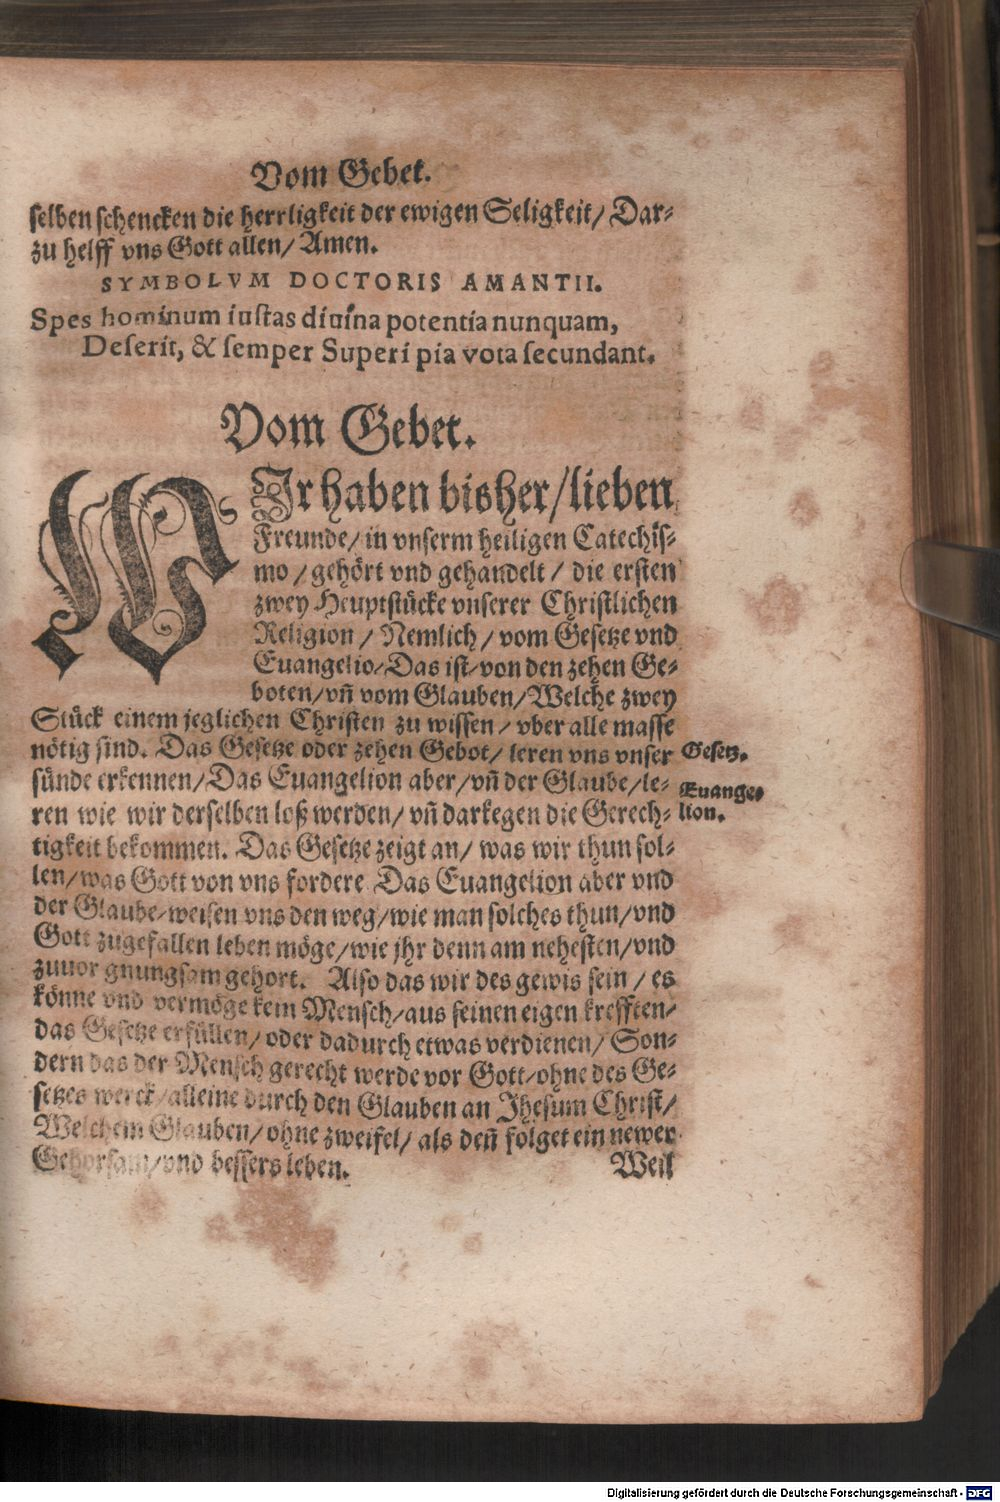 Vom Gebet.
selben schencken die herrligkeit der ewigen Seligkeit/ Dar-
zu helff vns Gott allen/ Amen.
SYMBOLVM DOCTORIS AMANTII.
Spes hominum iustas diuina potentia nunquam,
Deserit, & semper Superi pia vota secundant.
Vom Gebet.
WIr haben bisher/lieben
Freunde/ in vnserm heiligen Catechis-
mo / gehört vnd gehandelt / die ersten
zwey Heuptstücke vnserer Christlichen
Religion / Nemlich / vom Gesetze vnd
Euangelio/Das ist/von den zehen Ge-
boten/vñ vom Glauben/Welche zwey
Stück einem jeglichen Christen zu wissen / vber alle masse
nötig sind. Das Gesetze oder zehen Gebot/ leren vns vnser
Gesetz.
sünde erkennen/Das Euangelion aber/vñ der Glaube/le-
Euange-
ren wie wir derselben loß werden/ vñ darkegen die Gerech-
lion.
tigkeit bekommen. Das Gesetze zeigt an/ was wir thun sol-
len/was Gott von vns fordere Das Euangelion aber vnd
der Glaube/weisen vns den weg/wie man solches thun/vnd
Gott zugefallen leben möge/wie jhr denn am nehesten/vnd
zuuor gnungsam gehort. Also das wir des gewis sein / es
könne vnd vermöge kein Mensch/aus seinen eigen krefften/
das Gesetze erfüllen/ oder dadurch etwas verdienen/ Son-
dern das der Mensch gerecht werde vor Gott/ohne des Ge-
setzes werck/alleine durch den Glauben an Jhesum Christ/
Welchem Glauben/ ohne zweifel/ als deñ folget ein newer
Gehorsam/vnd bessers leben.
Weil
Digitalisierung gefördert durch die Deutsche Forschungsgemeinschaft - DFG